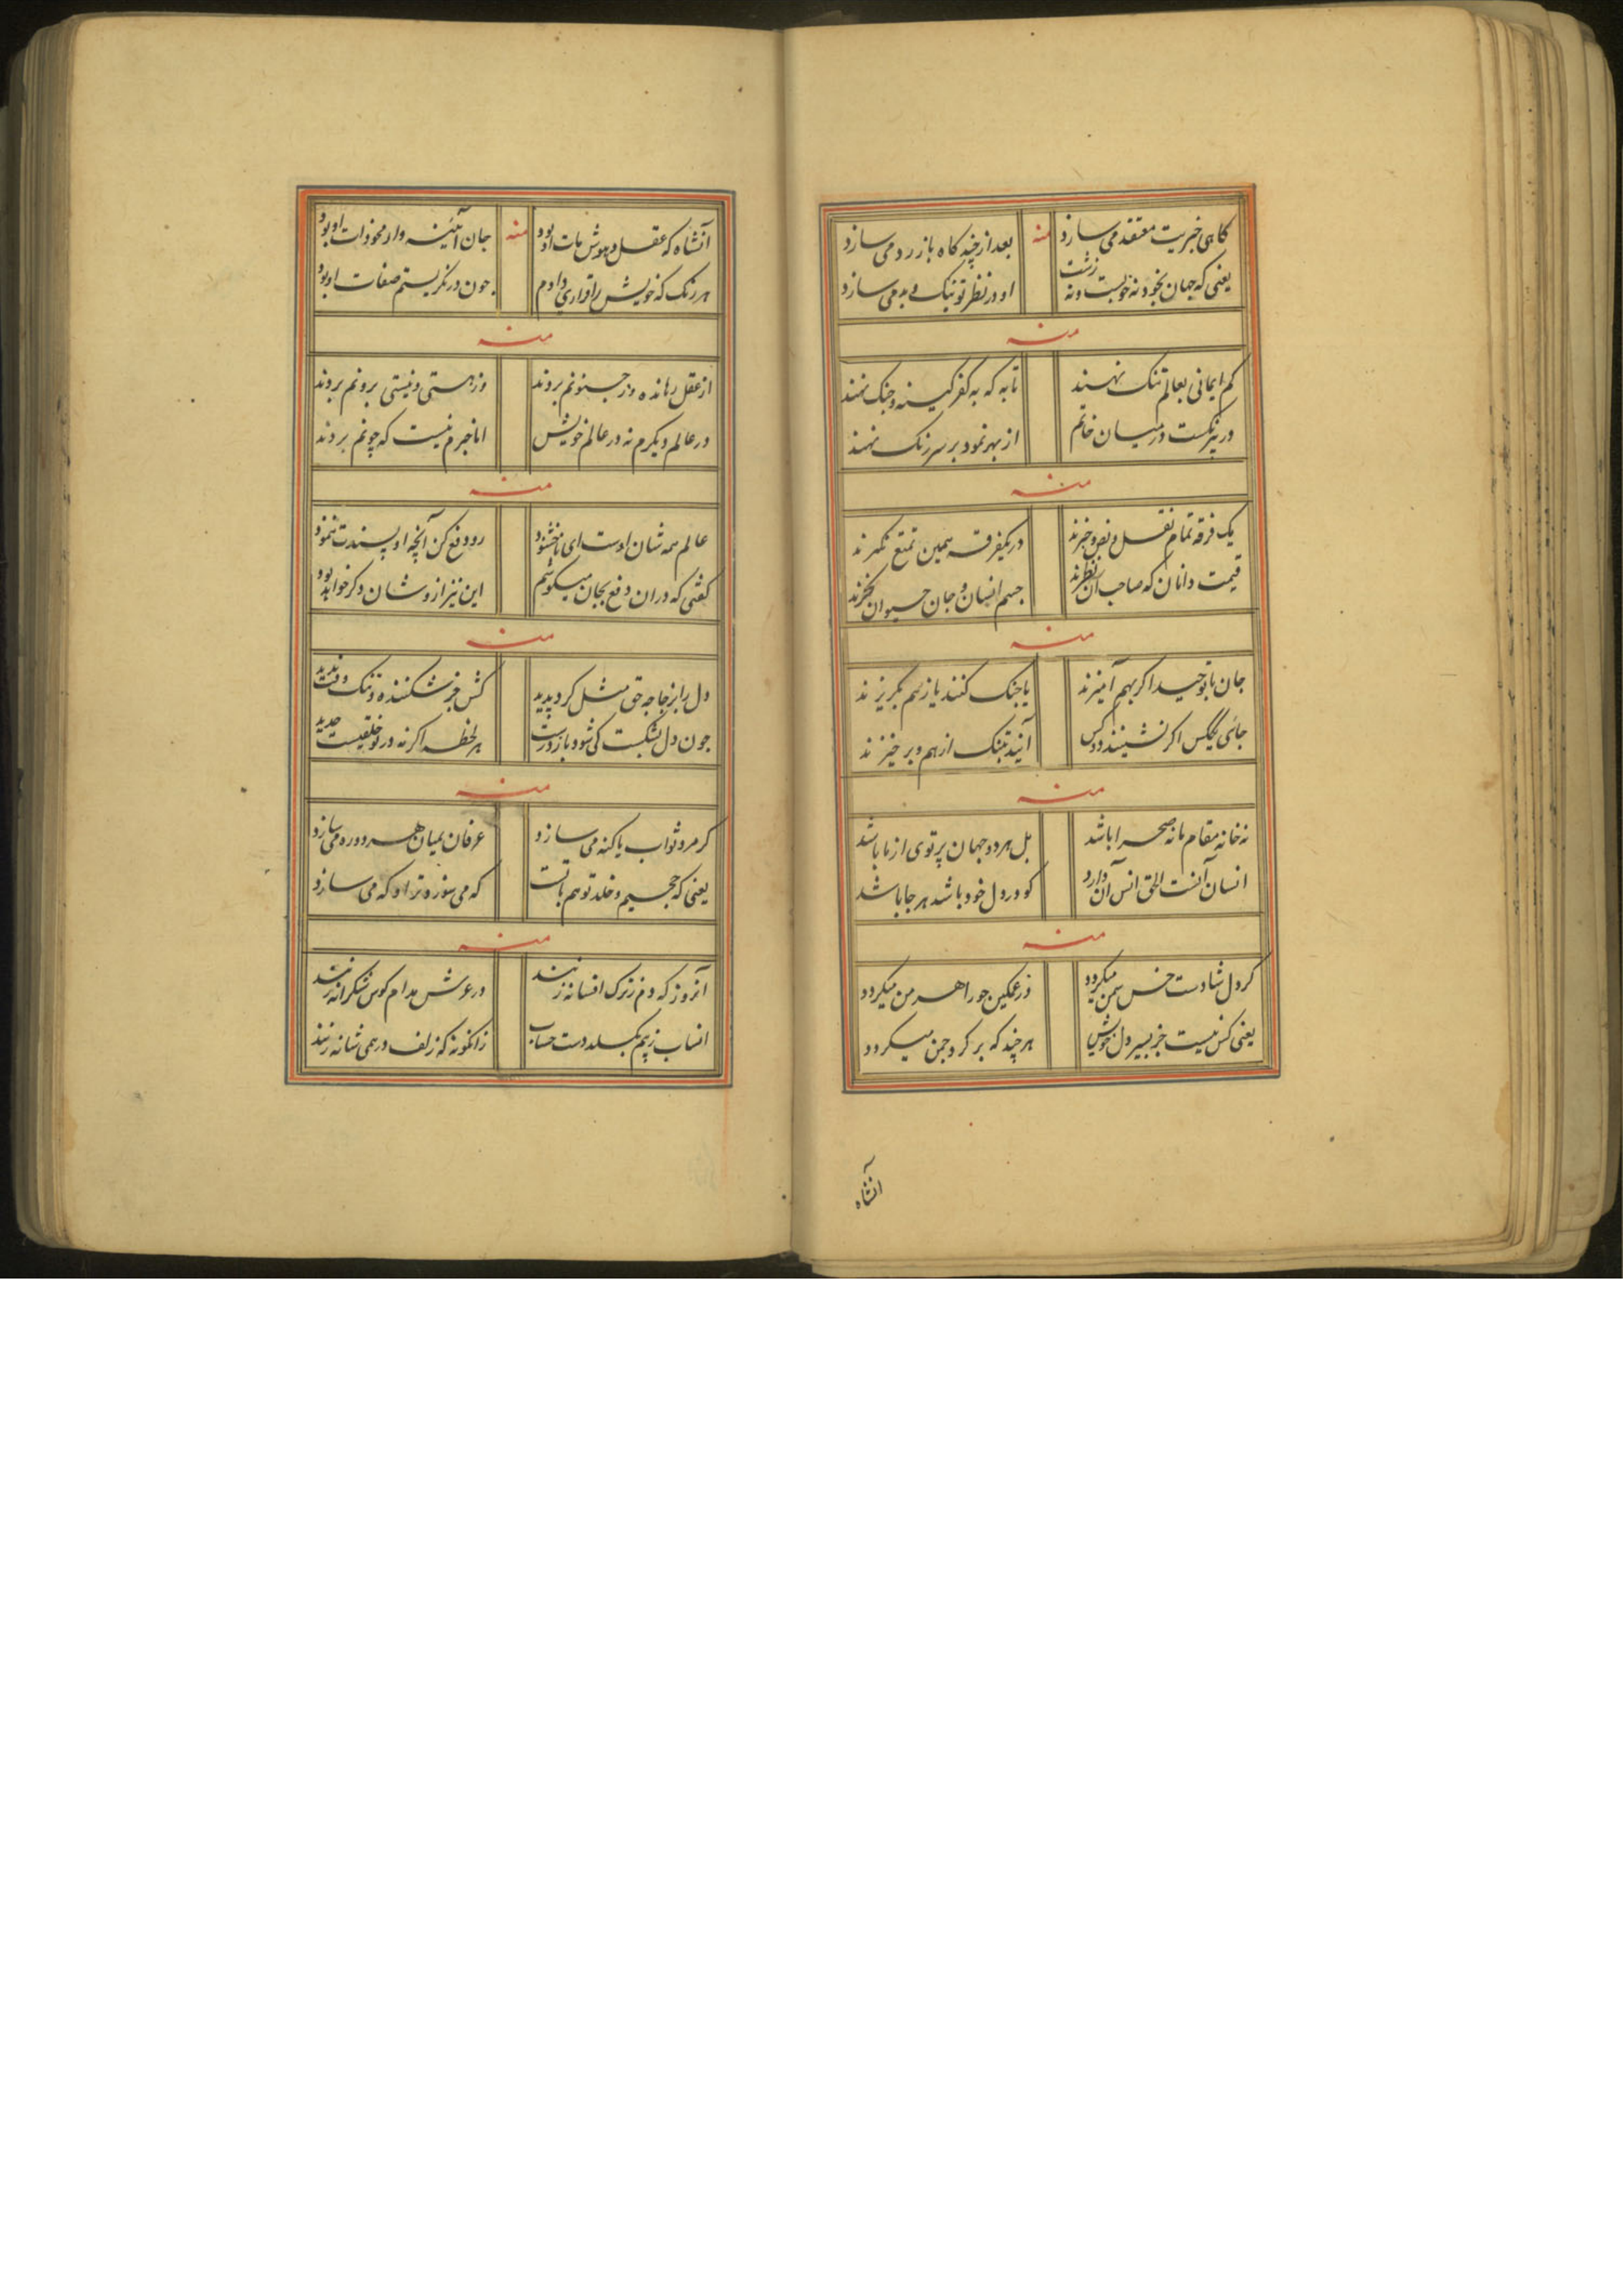 کاهی خبریت معتقد می سازد
منه
بعد از چند کاه باز رد می سازد
یعنی که جهان بخود نه خوبست و نه زشت
او در نظر تو نیک و بد می سازد
منه
کم ایمانی بعالم تنک نهند
تا به که به کفر کینه و جنک نهند
در پیر نکست در میان خاتم
از بهر نمود بر سر زنک نهند
منه
یک فرقه تمام نقل و نص و خبرند
در یکفرقه همین تمتع نکرند
قیمت دانان که صاحب آن نظرند
جسم انسان و جان حیوان نخرند
منه
جان با توحید اکر بهم آمیزند
یا جنک کنند یا ز هم بکریزند
جائی یکس اکر نشینند دو کس
آیند بتنک از هم و بر خیزند
منه
نه خانه مقام ما نه صحرا باشد
بل هر دو جهان پرتوی از ما باشد
انسان آنست الحق انس آن دارد
کو در دل خود باشد هر جا باشد
منه
کر دل شادست خس سمن میکردد
ور غمکین حور اهرمن میکردد
یعنی کس نیست جز بسیر دل خویش
هر چند که بر کرد چمن میکردد
آنشاه
آنشاه که عقل و هوش مات او بود
منه
جان آئینه وار محو ذات او بود
هر رنک که خویش را قراری دادم
چون در نکریستم صفات او بود
منه
از عقل رهانده وز جنونم بردند
وز هستی و نیستی برونم بردند
در عالم دیکرم نه در عالم خویش
اما خبرم نیست که چونم بردند
منه
عالم همه شان اوست ای ناخشنود
رو دفع کن آنچه او پسندت ننمود
کفتی که در آن دفع بجان میکوشم
این نیز از و شان دکر خواهد بود
منه
دل را بزجاجه حق مثل کرد پدید
کش جز شکننده و تنک وقت ندید
چون دل بشکست کی شود باز درست
هر لحظه اکر نه در تو خلقیست جدید
منه
کر مرد ثواب یا کنه می سازد
عرفان بمیان هر دو ره می سازد
یعنی که جحیم و خلد تو هم با تست
که می سوزد ترا و که می سازد
منه
آنروز که دم ز ترک افسانه زنند
در عرش مدام کوس شکرانه زنند
انساب ز هم بکسلد دست حساب
زانکونه که زلف درهمی شانه زنند